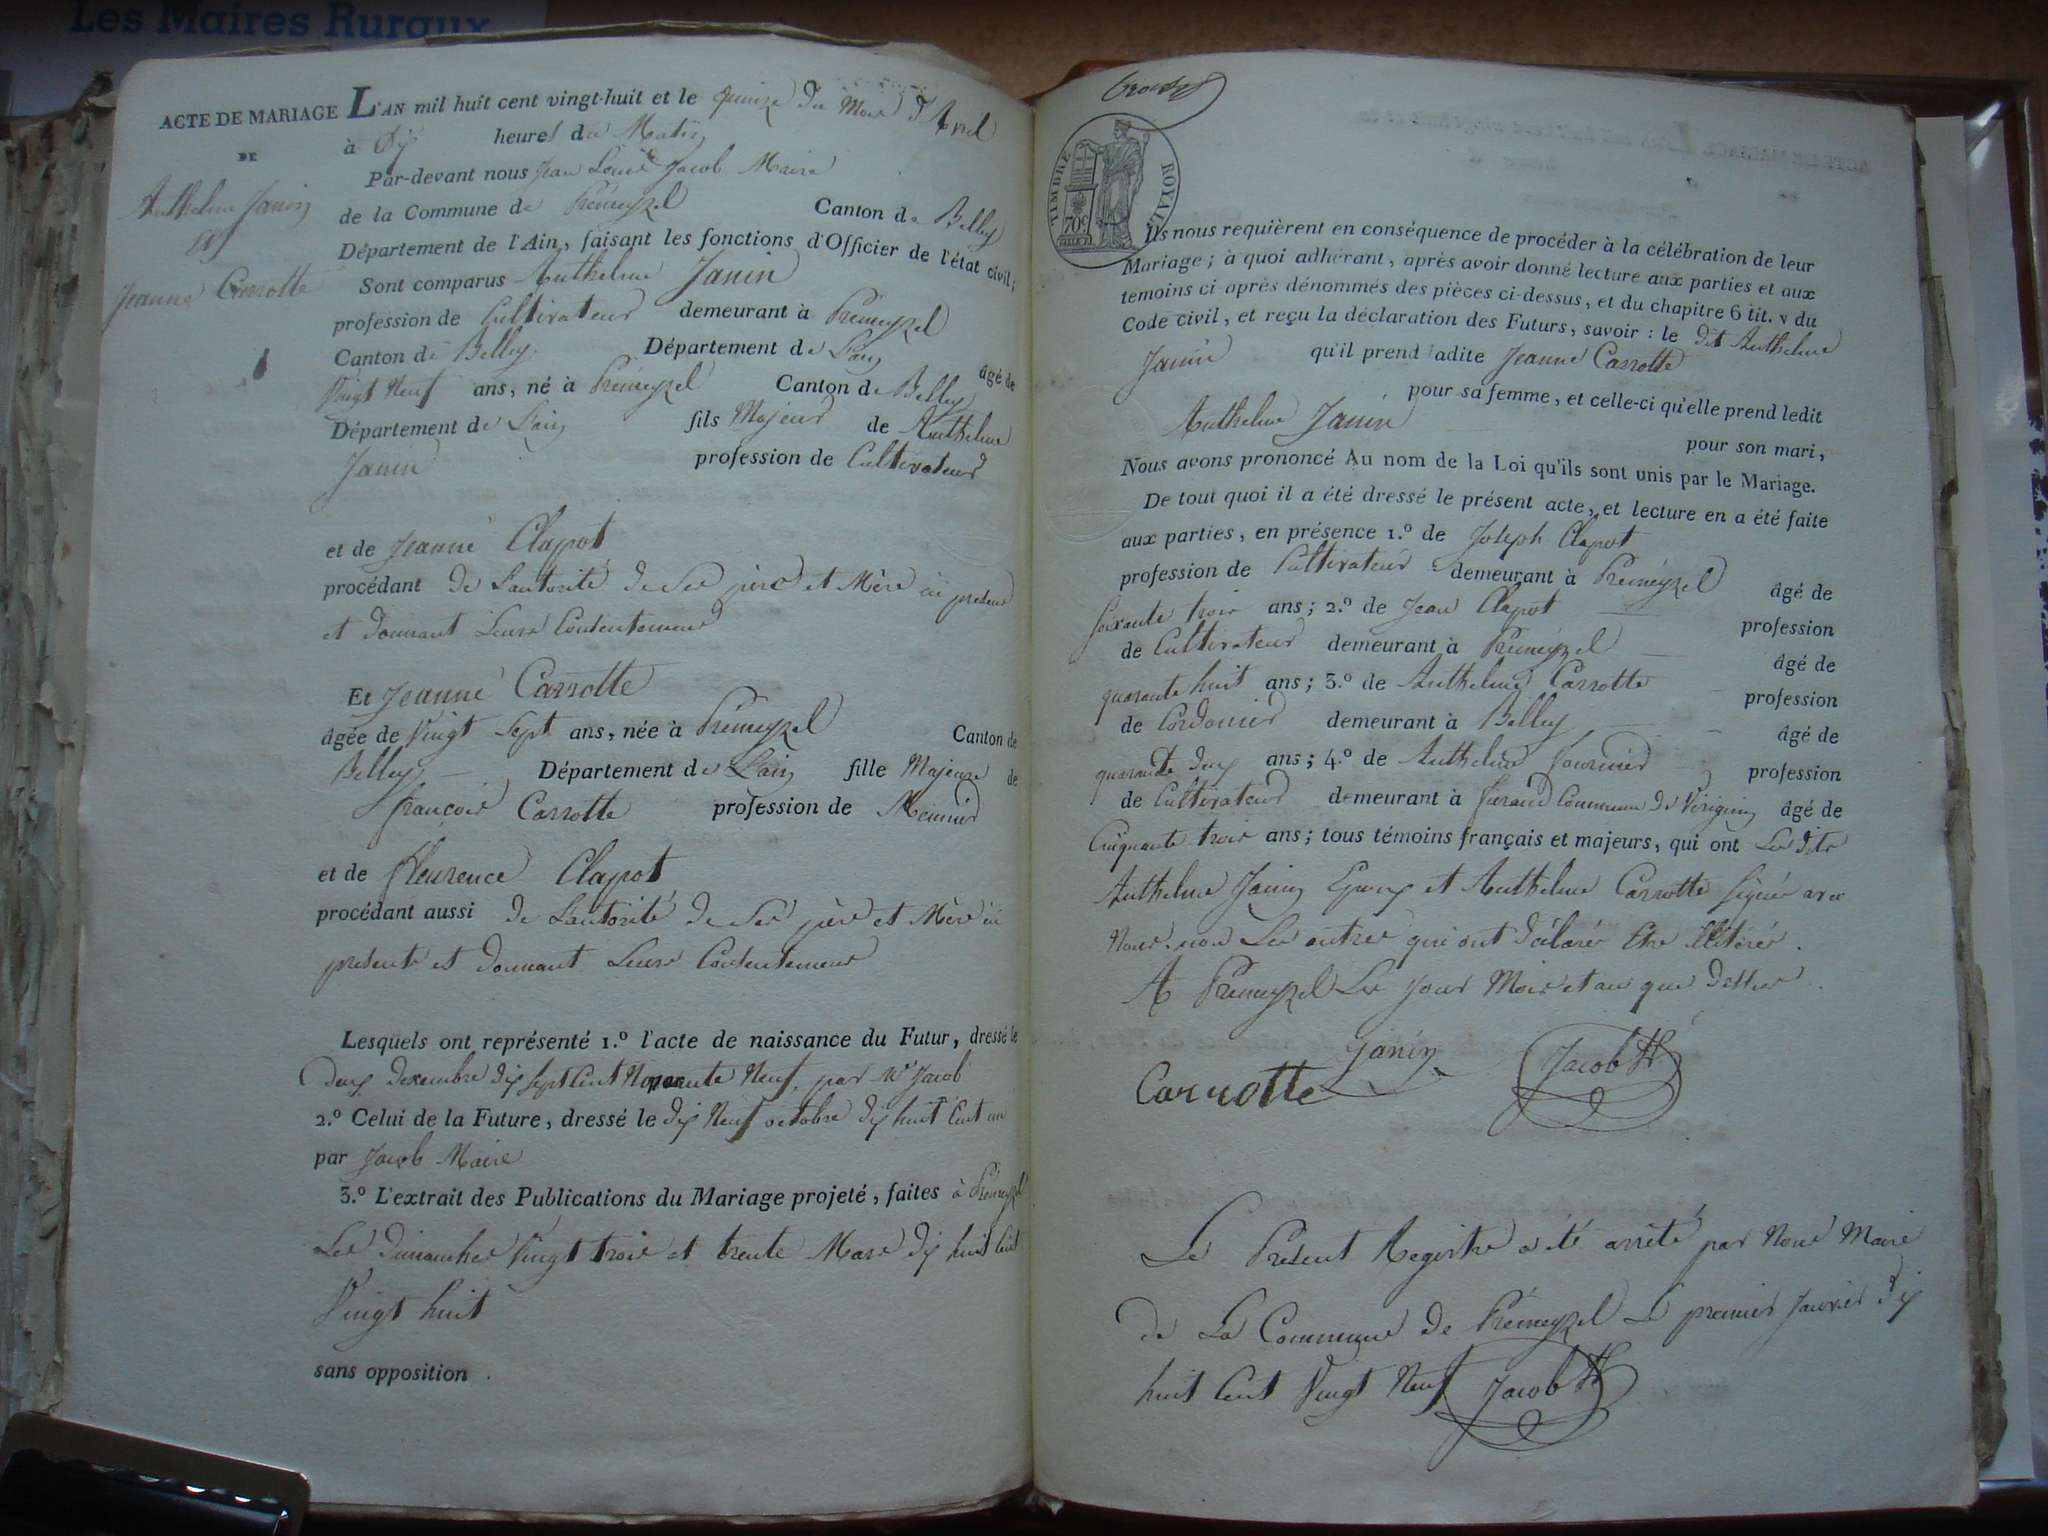 Les Maires Ruraux
ACTE DE MARIAGE
DE
Anthelme Janin
et
Jeanne Carrotte
L'AN mil huit cent vingt-huit et le quinze du Mois d'Avril
à Dix heures du Matin
Par-devant nous Jean Louis Jacob Maire
de la Commune de Prémeyzel Canton de Belley
Département de l'Ain, faisant les fonctions d'Officier de l'état civil;
Sont comparus Anthelme Janin
profession de Cultivateur demeurant à Prémeyzel
Canton de Belley Département de L'ain âgé de
Vingt Neuf ans, né à Prémeyzel Canton de Belley
Département de L'ain fils Majeur de Anthelme
Janin profession de Cultivateur
et de Jeanne Clapot
procédant de L'autorité de Ses père et Mère ici présens
et donnant Leurs Contentement
Et Jeanne Carrotte
âgée de Vingt Sept ans, née à Prémeyzel Canton de
Belley Département de L'ain fille Majeure de
françois Carrotte profession de Meunier
et de fleurence Clapot
procédant aussi de L'autorité de Ses père et Mère ici
présents et donnant Leurs Contentement
Lesquels ont représenté 1.º l'acte de naissance du Futur, dressé le
deux dexembre dix sept Cent Nonente Neuf, par Mr Jacob
2.º Celui de la Future, dressé le dix Neuf octobre dix huit Cent un
par Jacob Maire
3.º L'extrait des Publications du Mariage projeté, faites à Prémeyzel
Les dimanches Vingt trois et trente Mars dix huit Cent
Vingt huit
sans opposition.
TIMBRE ROYAL
70c
Ils nous requièrent en conséquence de procéder à la célébration de leur
Mariage; à quoi adhérant, après avoir donné lecture aux parties et aux
témoins ci-après dénommés des pièces ci-dessus, et du chapitre 6 tit. v du
Code civil, et reçu la déclaration des Futurs, savoir : le dit Anthelme
Janin qu'il prend ladite Jeanne Carrotte
pour sa femme, et celle-ci qu'elle prend ledit
Anthelme Janin pour son mari,
Nous avons prononcé Au nom de la Loi qu'ils sont unis par le Mariage.
De tout quoi il a été dressé le présent acte, et lecture en a été faite
aux parties, en présence 1.º de Joseph Clapot
profession de Cultivateur demeurant à Prémeyzel âgé de
soixante trois ans; 2.º de Jean Clapot profession
de Cultivateur demeurant à Prémeyzel âgé de
quarante huit ans; 3.º de Anthelme Carrotte profession
de Cordonier demeurant à Belley âgé de
quarante deux ans; 4.º de Anthelme fournier profession
de Cultivateur demeurant à Commune de Virignin âgé de
Cinquante trois ans; tous témoins français et majeurs, qui ont Les dits
Anthelme Janin Epoux et Anthelme Carrotte Signés avec
Nous non Les autres qui ont déclarés Etre illiterés.
A Prémeyzel Les Jour Mois et an que dessus.
Carrotte Janin Jacob
Le Présent Registre a été arrêté par Nous Maire
de La Commune de Prémeyzel Le premier Janvier dix
huit Cent Vingt Neuf Jacob